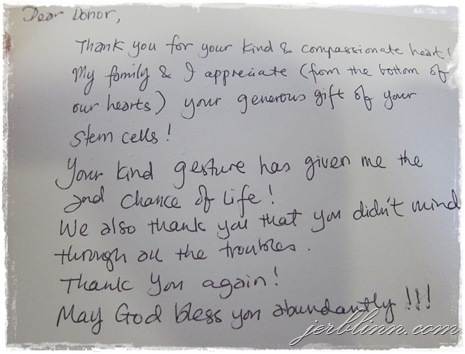 Dear Donor,
Thank you for your kind & compassionate heart!
My family & I appreciate (from the bottom of
our hearts) your generous gift of your
stem cells!
Your kind gesture has given me the
2nd chance of life!
We also thank you that you didn't mind
through all the troubles.
Thank you again!
May God bless you abundantly !!!
jerblinn.com